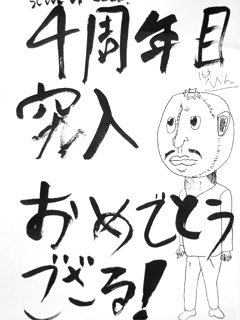 4周年目
突入
おめでとう
ござる!